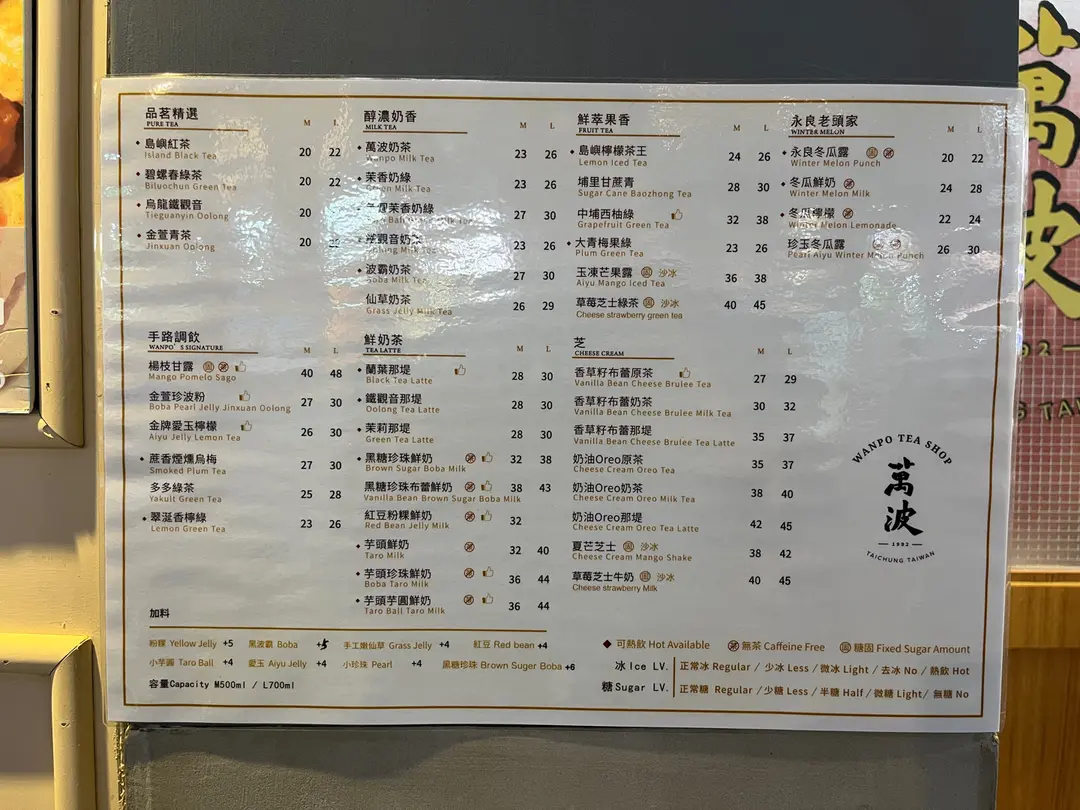 品茗精選
PURE TEA M L
島嶼紅茶 20 22
Island Black Tea
碧螺春綠茶 20 22
Biluochun Green Tea
烏龍鐵觀音 20
Tieguanyin Oolong
金萱青茶 20 22
Jinxuan Oolong
醇濃奶香
MILK TEA M L
萬波奶茶 23 26
Wanpo Milk Tea
茉香奶綠 23 26
Green Milk Tea
茉香奶綠 27 30
觀音奶 23 26
Milk Tea
波霸奶茶 27 30
Boba Milk Tea
仙草奶茶 26 29
Grass Jelly Milk Tea
鮮萃果香
FRUIT TEA M L
島嶼檸檬茶王 24 26
Lemon Iced Tea
埔里甘蔗青 28 30
Sugar Cane Baozhong Tea
中埔西柚綠 32 38
Grapefruit Green Tea
大青梅果綠 23 26
Plum Green Tea
玉凍芒果露 固 沙冰 36 38
Aiyu Mango Iced Tea
草莓芝士綠茶 固 沙冰 40 45
Cheese strawberry green tea
永良老頭家
WINTER MELON M L
永良冬瓜露 固 20 22
Winter Melon Punch
冬瓜鮮奶 24 28
Winter Melon Milk
冬瓜檸檬 22 24
Winter Melon Lemonade
珍玉冬瓜露 26 30
Pearl Aiyu Winter Melon Punch
手路調飲
WANPO'S SIGNATURE M L
楊枝甘露 固 40 48
Mango Pomelo Sago
金萱珍波粉 27 30
Boba Pearl Jelly Jinxuan Oolong
金牌愛玉檸檬 26 30
Aiyu Jelly Lemon Tea
蔗香煙燻烏梅 27 30
Smoked Plum Tea
多多綠茶 25 28
Yakult Green Tea
翠涎香檸綠 23 26
Lemon Green Tea
鮮奶茶
TEA LATTE M L
蘭葉那堤 28 30
Black Tea Latte
鐵觀音那堤 28 30
Oolong Tea Latte
茉莉那堤 28 30
Green Tea Latte
黑糖珍珠鮮奶 32 38
Brown Sugar Boba Milk
黑糖珍珠布蕾鮮奶 38 43
Vanilla Bean Brown Sugar Boba Milk
紅豆粉粿鮮奶 32
Red Bean Jelly Milk
芋頭鮮奶 32 40
Taro Milk
芋頭珍珠鮮奶 36 44
Boba Taro Milk
芋頭芋圓鮮奶 36 44
Taro Ball Taro Milk
芝
CHEESE CREAM M L
香草籽布蕾原茶 27 29
Vanilla Bean Cheese Brulee Tea
香草籽布蕾奶茶 30 32
Vanilla Bean Cheese Brulee Milk Tea
香草籽布蕾那堤 35 37
Vanilla Bean Cheese Brulee Tea Latte
奶油Oreo原茶 35 37
Cheese Cream Oreo Tea
奶油Oreo奶茶 38 40
Cheese Cream Oreo Milk Tea
奶油Oreo那堤 42 45
Cheese Cream Oreo Tea Latte
夏芒芝士 固 沙冰 38 42
Cheese Cream Mango Shake
草莓芝士牛奶 固 沙冰 40 45
Cheese strawberry Milk
WANPO TEA SHOP
萬波
1992
TAICHUNG TAIWAN
加料
粉粿 Yellow Jelly +5 黑波霸 Boba +5 手工嫩仙草 Grass Jelly +4 紅豆 Red bean +4
小芋圓 Taro Ball +4 愛玉 Aiyu Jelly +4 小珍珠 Pearl +4 黑糖珍珠 Brown Suger Boba +6
容量Capacity M500ml / L700ml
可熱飲 Hot Available 無茶 Caffeine Free 固 糖固 Fixed Sugar Amount
冰 Ice LV. 正常冰 Regular / 少冰 Less / 微冰 Light / 去冰 No / 熱飲 Hot
糖 Sugar LV. 正常糖 Regular / 少糖 Less / 半糖 Half / 微糖 Light / 無糖 No
萬波